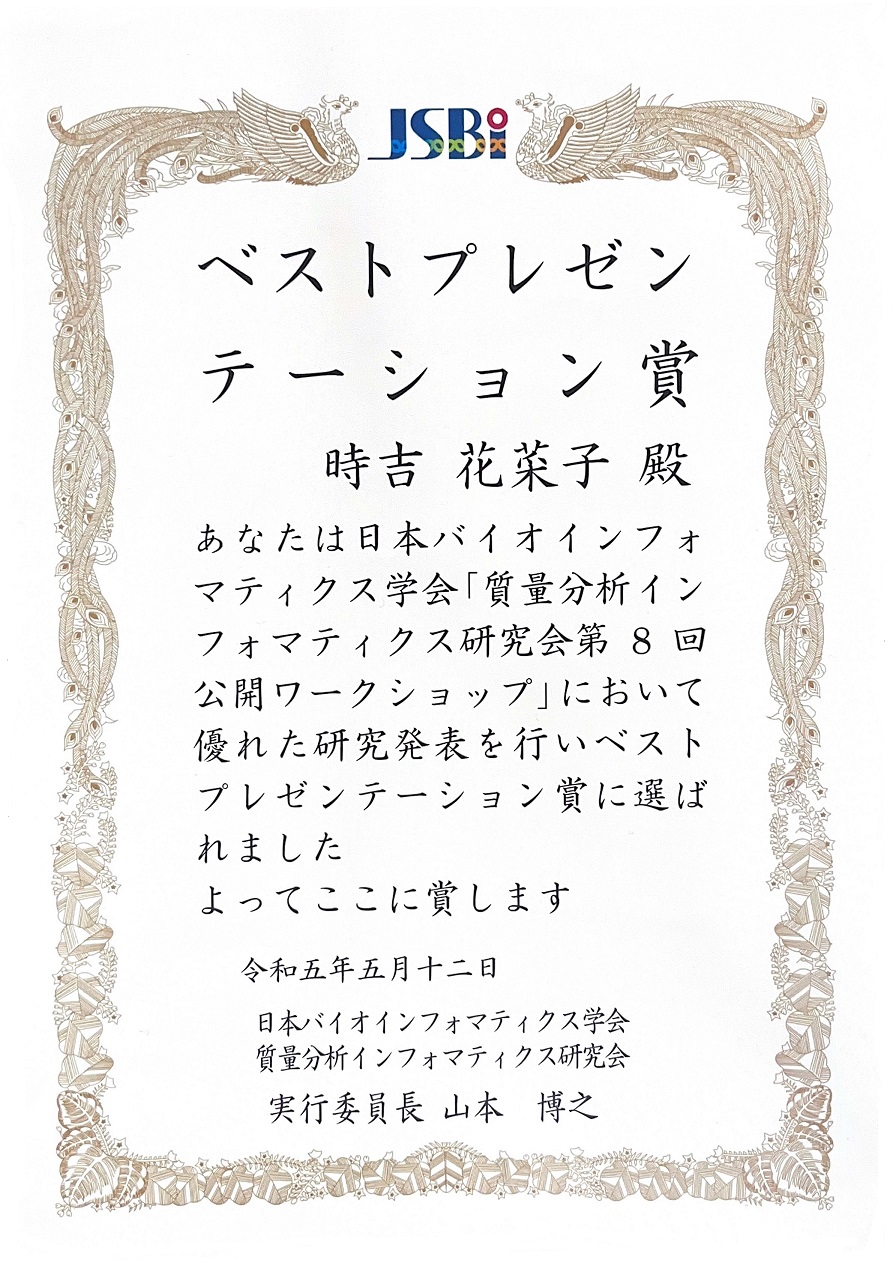 JSBi
ベストプレゼン
テーション賞
時吉 花菜子 殿
あなたは日本バイオインフォ
マティクス学会「質量分析イン
フォマティクス研究会第 8 回
公開ワークショップ」において
優れた研究発表を行いベスト
プレゼンテーション賞に選ば
れました
よってここに賞します
令和五年五月十二日
日本バイオインフォマティクス学会
質量分析インフォマティクス研究会
実行委員長 山本　博之